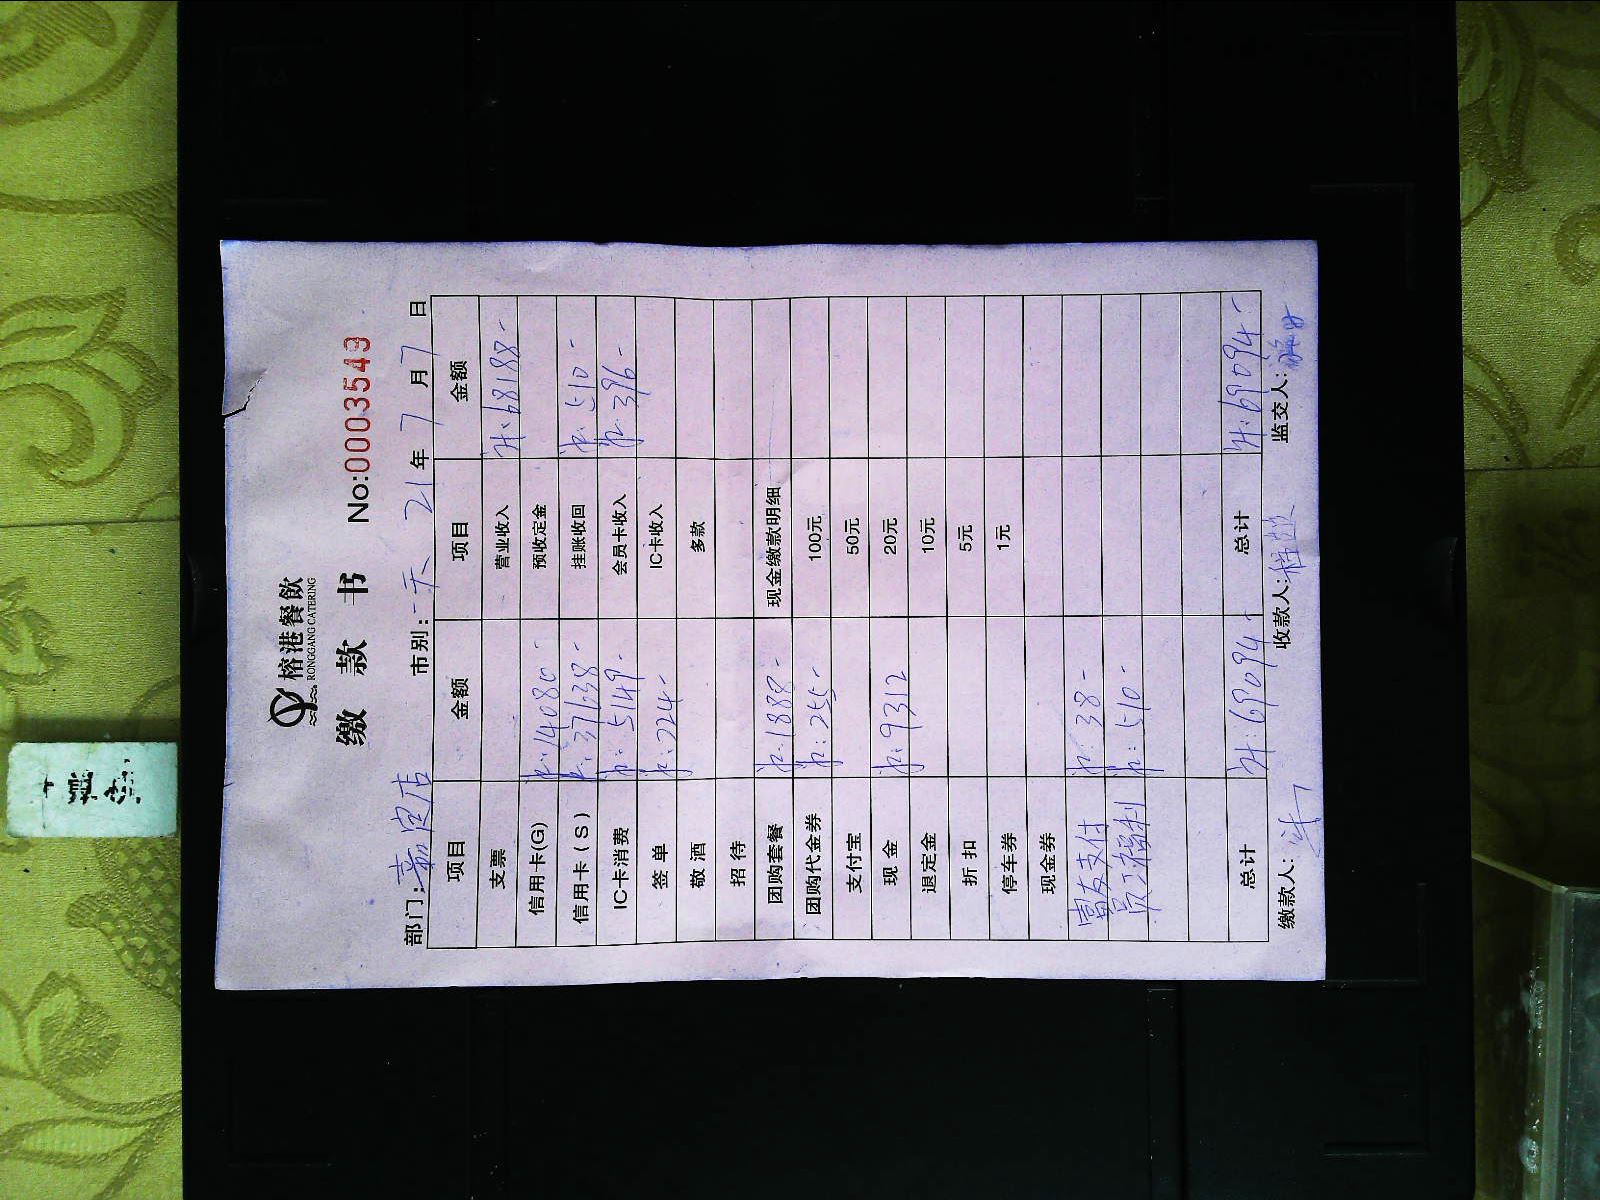 榕港餐飲
RONGGANG CATERING
缴 款 书 No:0003549
部门:嘉定店 市别:一天 21年7月7日
项目 金额 项目 金额
支票 营业收入 ¥:68188-
信用卡(G) ¥:14080- 预收定金
信用卡(S) ¥:37638- 挂账收回 ¥:510-
IC卡消费 ¥:5149- 会员卡收入 ¥:396-
签单 ¥:224- IC卡收入
敬酒 多款
招待
团购套餐 ¥:1888- 现金缴款明细
团购代金券 ¥:255- 100元
支付宝 50元
现金 ¥:9312 20元
退定金 10元
折扣 5元
停车券 1元
现金券
富友支付 ¥:38-
员工福利 ¥:510-
总计 ¥:69094- 总计 ¥:69094-
缴款人: 收款人: 监交人: